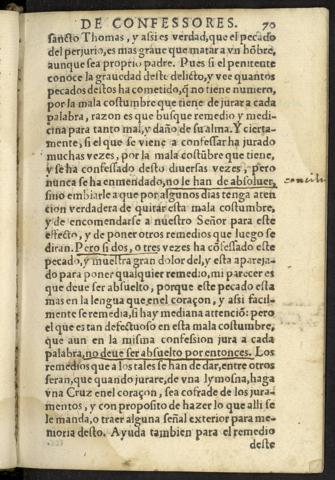 DE CONFESSORES. 70
sancto Thomas, y assi es verdad, que el pecado
del perjurio, es mas graue que matar a vn hōbre,
aunque sea proprio padre. Pues si el penitente
conoce la grauedad deste delicto, y vee quantos
pecados destos ha cometido, q̄ no tiene numero,
por la mala costumbre que tiene de jurar a cada
palabra, razon es que busque remedio y medi-
cina para tanto mal, y daño de su alma. Y cierta-
mente, si el que se viene a confessar ha jurado
muchas vezes, por la mala costūbre que tiene,
y se ha confessado desto diuersas vezes, pero
nunca se ha enmendado, no le han de absoluer,
sino embiarle a que por algunos dias tenga aten
cion verdadera de quitar esta mala costumbre,
y de encomendarse a nuestro Señor para este
effecto, y de poner otros remedios que luego se
diran. Pero si dos, o tres vezes ha cōfessado este
pecado, y muestra gran dolor del, y esta apareja-
do para poner qualquier remedio, mi parecer es
que deue ser absuelto, porque este pecado esta
mas en la lengua que en el coraçon, y assi facil-
mente se remedia, si hay mediana attenciō: pero
el que es tan defectuoso en esta mala costumbre,
que aun en la misma confession jura a cada
palabra, no deue ser absuelto por entonces. Los
remedios que a los tales se han de dar, entre otros
seran, que quando jurare, de vna lymosna, haga
vna Cruz en el coraçon, sea cofrade de los jura-
mentos, y con proposito de hazer lo que alli se
le manda, o traer alguna señal exterior para me-
moria desto. Ayuda tambien para el remedio
deste